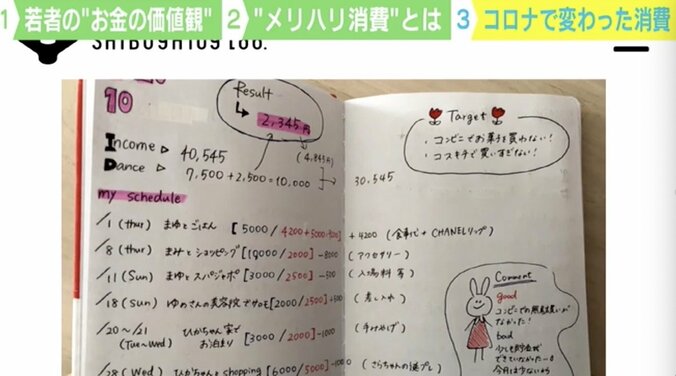 1 若者の"お金の価値観" 2 "メリハリ消費"とは 3 コロナで変わった消費
SHIBUYA109 Lab.
10
Result
↳ 2,345円
(4,845円)
Income ▷ 40,545
Dance ▷ 7,500+2,500=10,000
30,545
Target
・コンビニでお菓子を買わない!
・コスキチで買いすぎない!
my schedule
/1 (thur) まゆとごはん [5000/4200+5000
+4200 (食事代+CHANELリップ)
/8 (thur) まみとショッピング [10000/2000] -8000
(アクセサリー)
/11 (Sun) まゆとスパジャポ [3000/2500] -500
(入場料等)
/18 (Sun) ゆめさんの美容校で [2000/2500] +500
(差し入れ)
/20〜/21 (Tue~Wed) ひかちゃん家でお泊まり [3000/2000] -1000
(手みやげ)
/28 (Wed) ひかちゃんとshopping [6000/5000] -1000
(さらちゃんの誕プレ)
Comment
good
コンビニでの無駄買いが
なかった!
bad
少しも貯金が
できていなかった
今月は少ないから